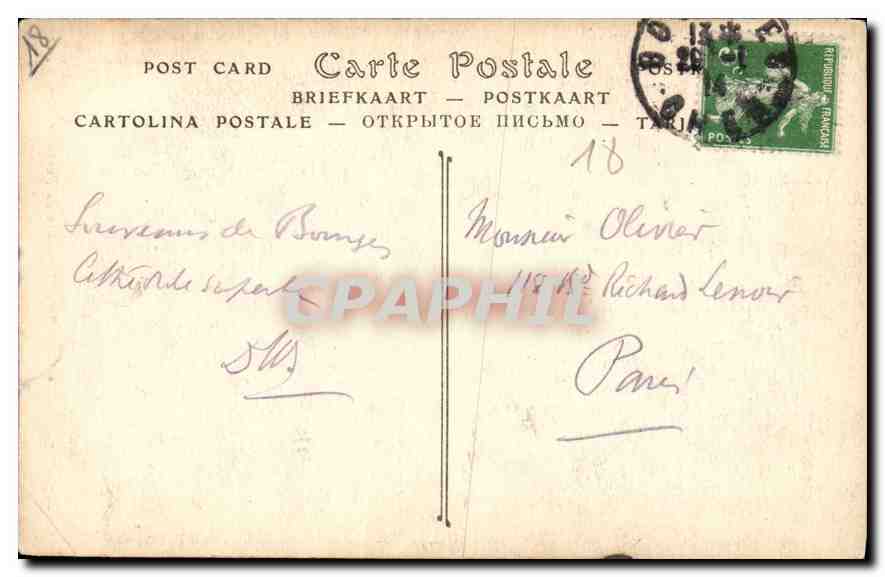 18
POST CARD Carte Postale
BRIEFKAART — POSTKAART
CARTOLINA POSTALE — ОТКРЫТОЕ ПИСЬМО — TARJ
13
20 -1
14
REPUBLIQUE FRANÇAISE
POSTES
18
Souvenirs de Bourges
Cathédrale superbe
Monsieur Olivier
118 Bd Richard Lenoir
Paris
CPAPHIL